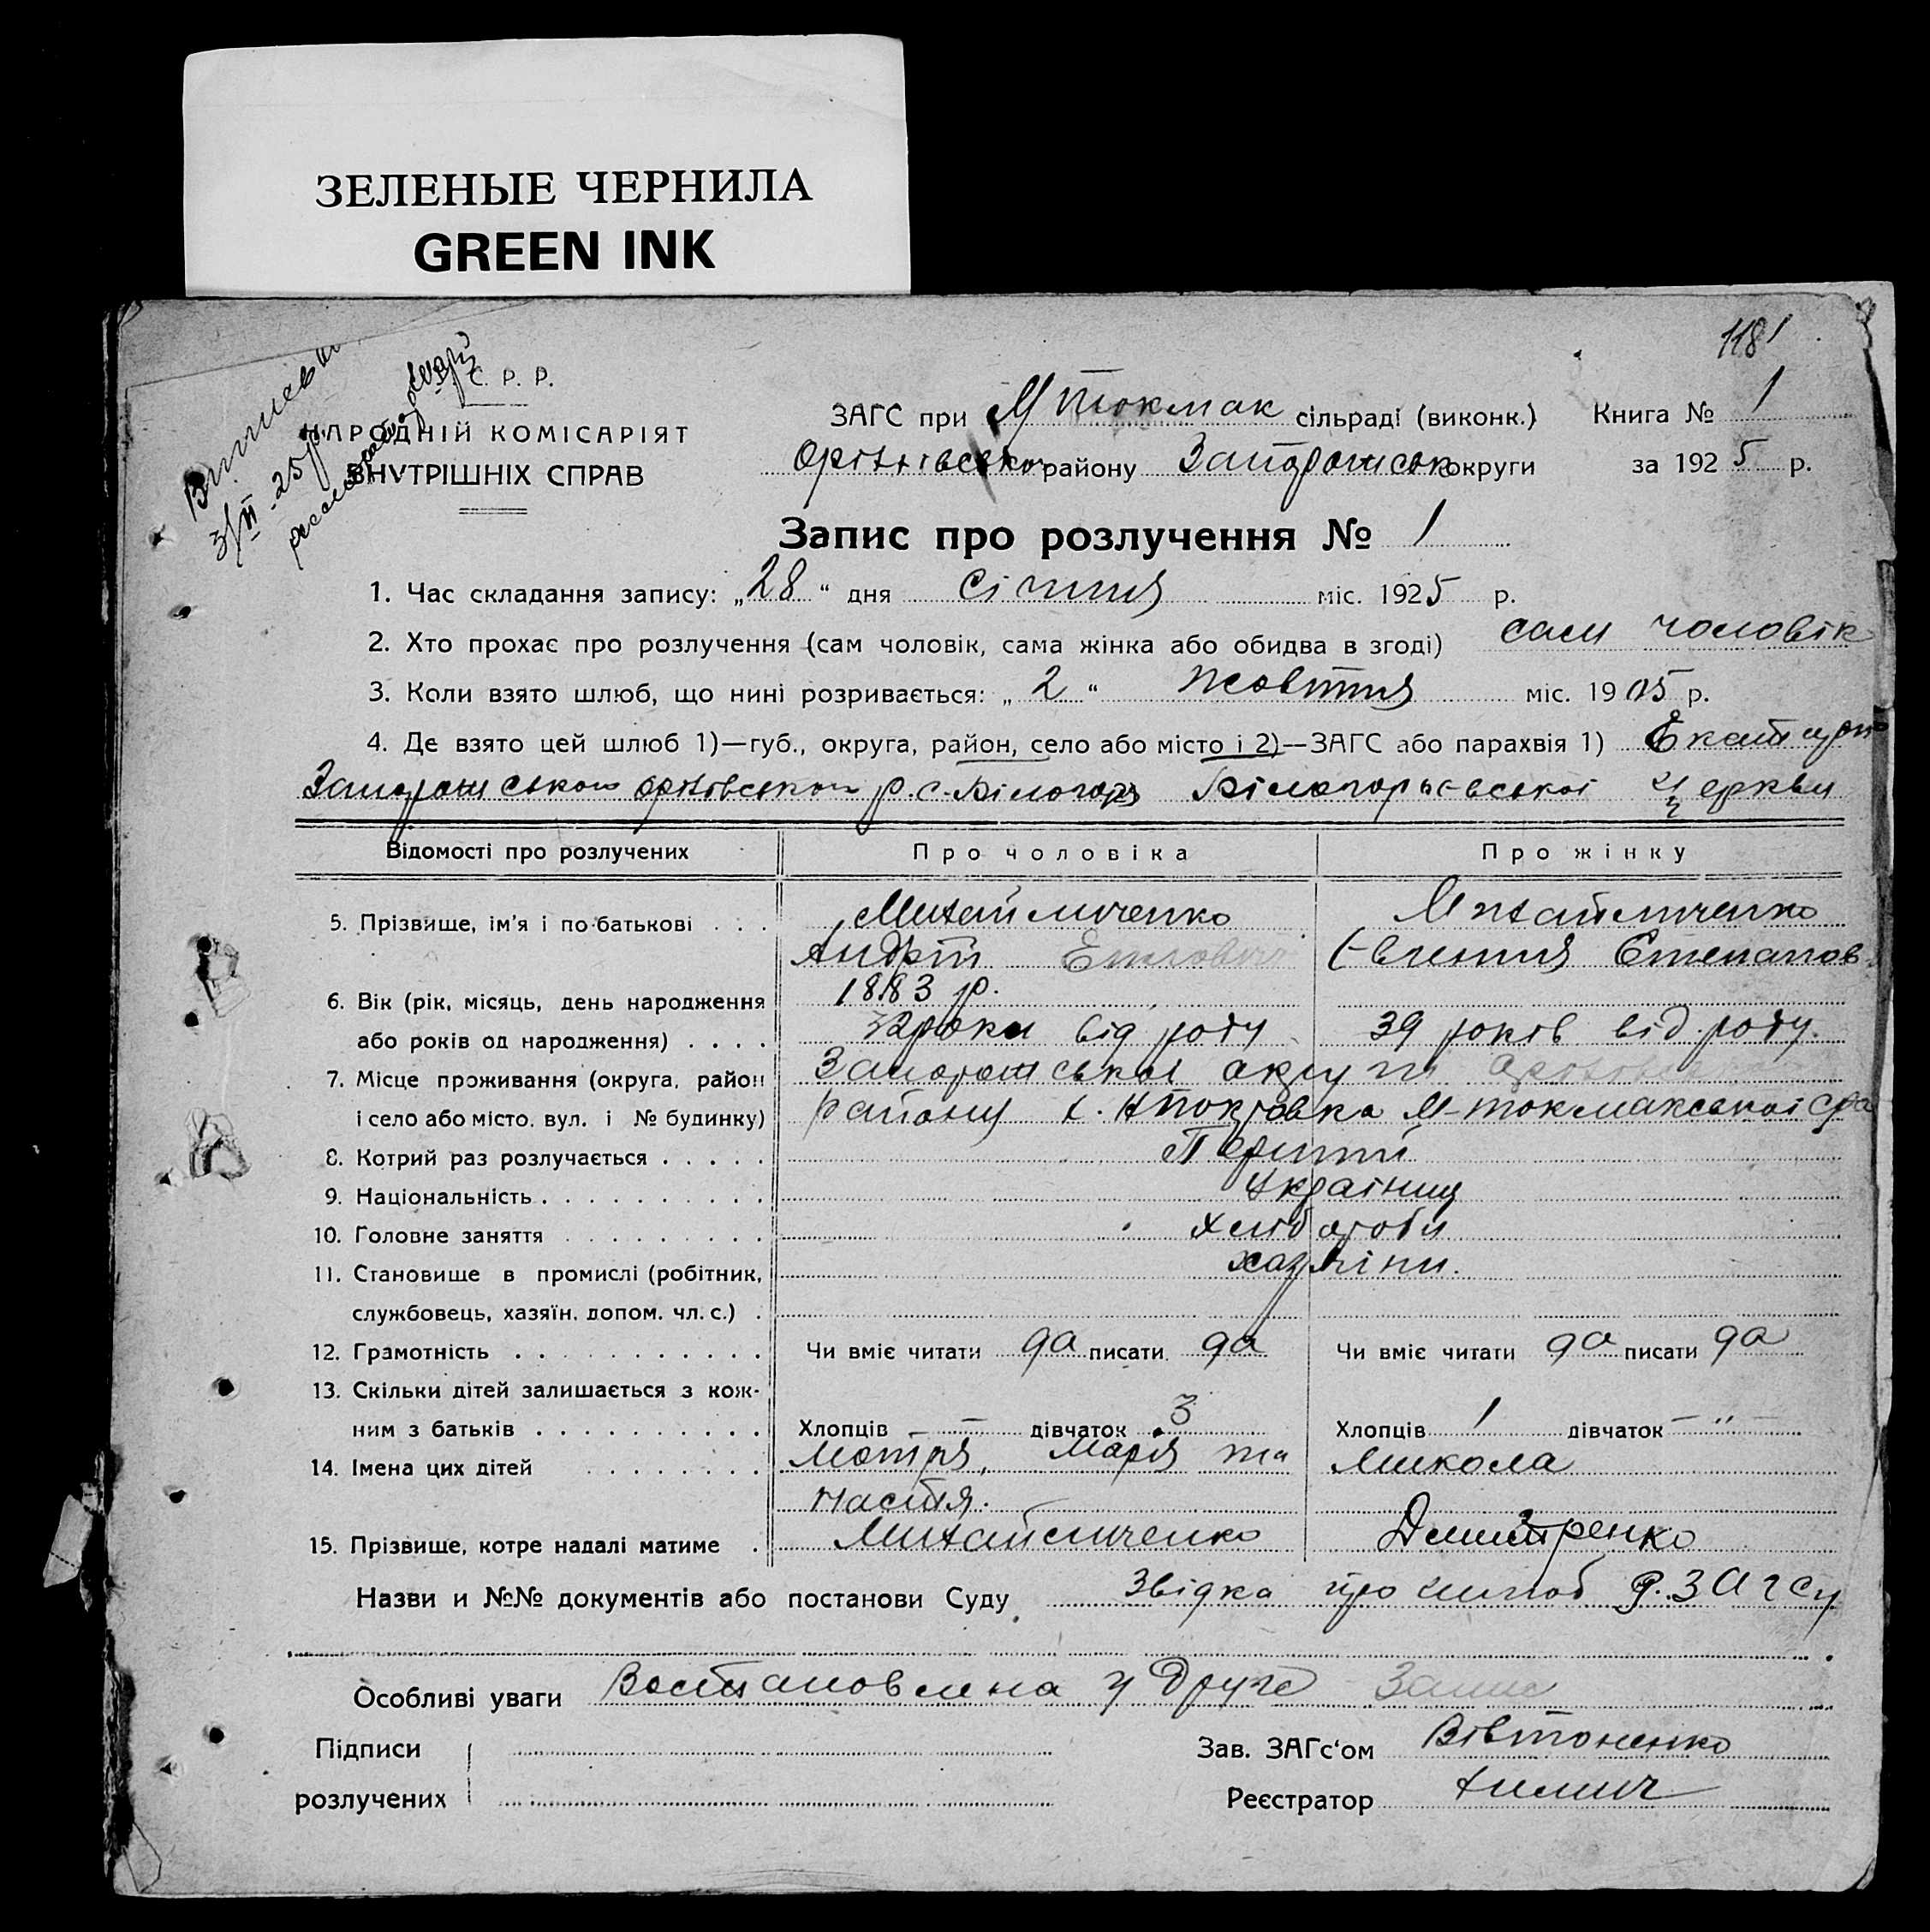 ЗЕЛЕНЫЕ ЧЕРНИЛА
GREEN INK
1181
С. Р. Р.
НАРОДНІЙ КОМІСАРІЯТ
ВНУТРІШНІХ СПРАВ
3/II-25р.
ЗАГС при М Токмак сільраді (виконк.) Книга № 1
Оріхівсько району Запорожськ округи за 1925 р.
Запис про розлучення № 1
1. Час складання запису: „28“ дня Січння міс. 1925 р.
2. Хто прохає про розлучення (сам чоловік, сама жінка або обидва в згоді) сам чоловік
3. Коли взято шлюб, що нині розривається: „2“ Жовтня міс. 1905 р.
4. Де взято цей шлюб 1)—губ., округа, район, село або місто і 2)—ЗАГС або парахвія 1)
р. с. Білогоря церкви
Відомості про розлучених Про чоловіка Про жінку
5. Прізвище, ім'я і по-батькові . . . Михайличенко Михайличенко
Андрій Евгения Степанов
6. Вік (рік, місяць, день народження 1883 р.
або років од народження) . . . . роки від роду 39 років від роду.
7. Місце проживання (округа, район Запорожської округи
і село або місто, вул. і № будинку) району М-токмакської
8. Котрий раз розлучається . . . . . Перший
9. Національність . . . . . . . . . . Українці
10. Головне заняття . . . . . . . . . хліборобы
11. Становище в промислі (робітник, хазяіни.
службовець, хазяїн, допом. чл. с.) .
12. Грамотність . . . . . . . . . . . Чи вміє читати да писати да Чи вміє читати да писати да
13. Скільки дітей залишається з кож-
ним з батьків . . . . . . . . . . Хлопців — дівчаток 3 Хлопців 1 дівчаток — " —
14. Імена цих дітей . . . . . . . Мотря, Марія та Микола
Настя.
15. Прізвище, котре надалі матиме . Михайличенко Дмитренко
Назви и №№ документів або постанови Суду Звідка про шлюб Р. ЗАГСу
Особливі уваги Востановлена у Друге Запис
Підписи Зав. ЗАГс'ом Вівтоненко
розлучених Реєстратор